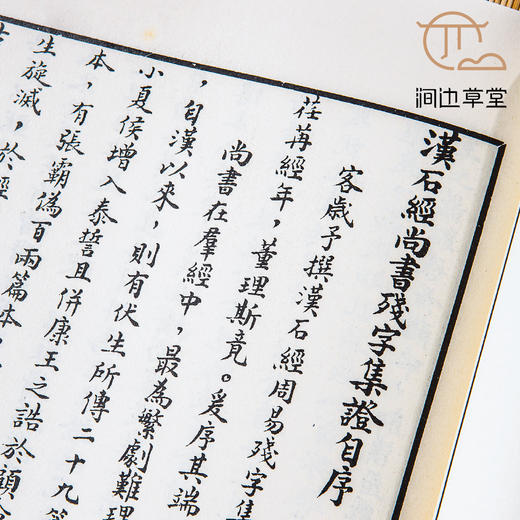 漢石經尚書殘字集證自序
客歲予撰漢石經周易殘字集
荏苒經年，董理斯竟。爰序其端
尚書在羣經中，最為繁劇難理
，自漢以來，則有伏生所傳二十九篇
小夏侯增入泰誓且併康王之誥於顧命
本，有張霸偽百兩篇本
生旋滅，於經
涧边草堂